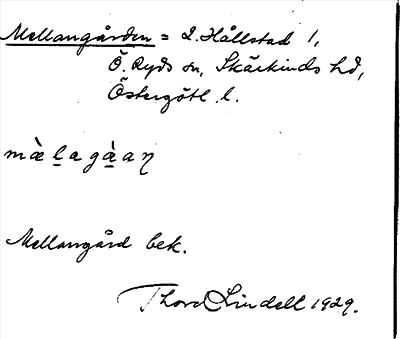 Mellangården = L. Hållstad 1,
Ö. Ryds sn, Skärkinds hd,
Östergötl. l.
mæ̀l̠agà̠aŋ
Mellangård bek.
Thord Lindell 1929.